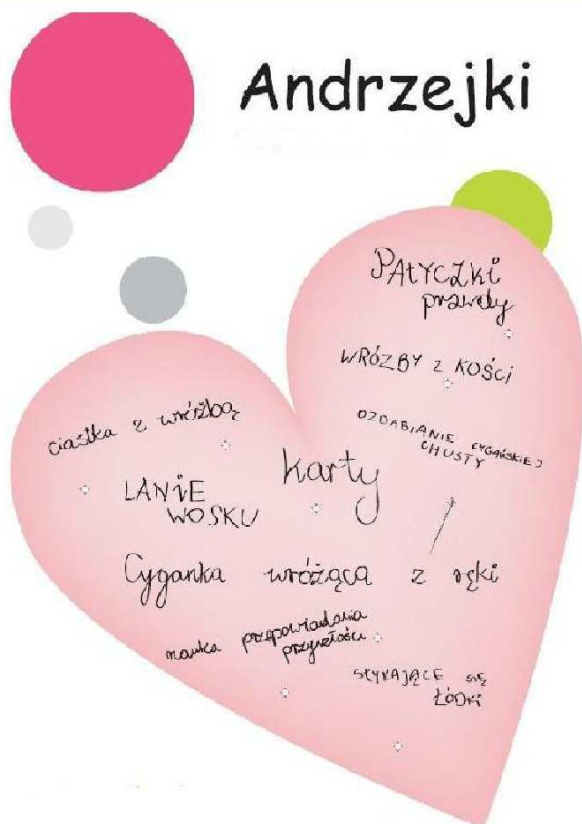 Andrzejki
PAtYCZKi
prawdy
WRÓŻBY Z KOŚCi
ciastka z wróżbą
OZDABIANIE CYGAŃSKIEJ
CHUSTY
karty
LANiE
WOSKU
Cyganka wróżąca z ręki
nauka przepowiadania
przyszłości
STYKAJĄCE SIĘ
ŁÓDKI